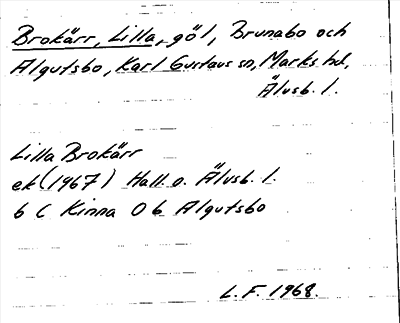 Brokärr, Lilla, göl, Brunabo och
Algutsbo, Karl Gustavs sn, Marks hd,
Älvsb. l.
Lilla Brokärr
ek (1967) Hall. o. Älvsb. l.
6 C Kinna 0 b Algutsbo
L. F. 1968.